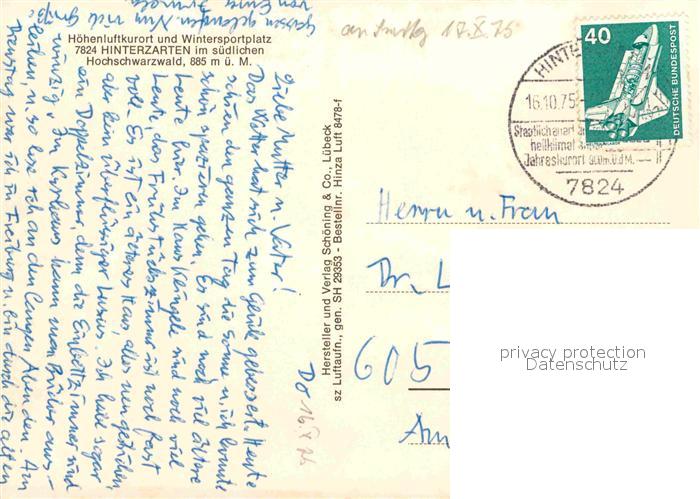 Höhenluftkurort und Wintersportplatz
7824 HINTERZARTEN im südlichen
Hochschwarzwald, 885 m ü. M.
Do 16.X.75
Liebe Mutter u. Vater!
Das Wetter hat sich zum Glück gebessert. Heute
schien den ganzen Tag die Sonne u. ich konnte
schön spazieren gehen. Es sind noch viel ältere
Leute hier. Im Haus Klingele sind noch viel
Leute, das Frühstückszimmer ist noch fast
voll. Es ist ein älteres Haus, alles neu gestrichen,
aber kein überflüssiger Luxus. Ich habe sogar
ein Doppelzimmer, denn die Einbettzimmer sind
winzig. Im Kurhaus kann man Bücher aus-
leihen, u. so lese ich an den langen Abenden. Am
Dienstag war ich in Freiburg u. bin durch die alten
Gassen gelaufen. Nun viel
Hersteller und Verlag Schöning & Co., Lübeck
sz Luftaufn., gen. SH 29353 - Bestellnr. Hinza Luft 8478-f
17.X.75
40
DEUTSCHE BUNDESPOST
HINTE
16.10.75
Staatlich
heilklimat
Jahreskurort
7824
Herrn u. Frau
Dr. L
605
Am
privacy protection
Datenschutz